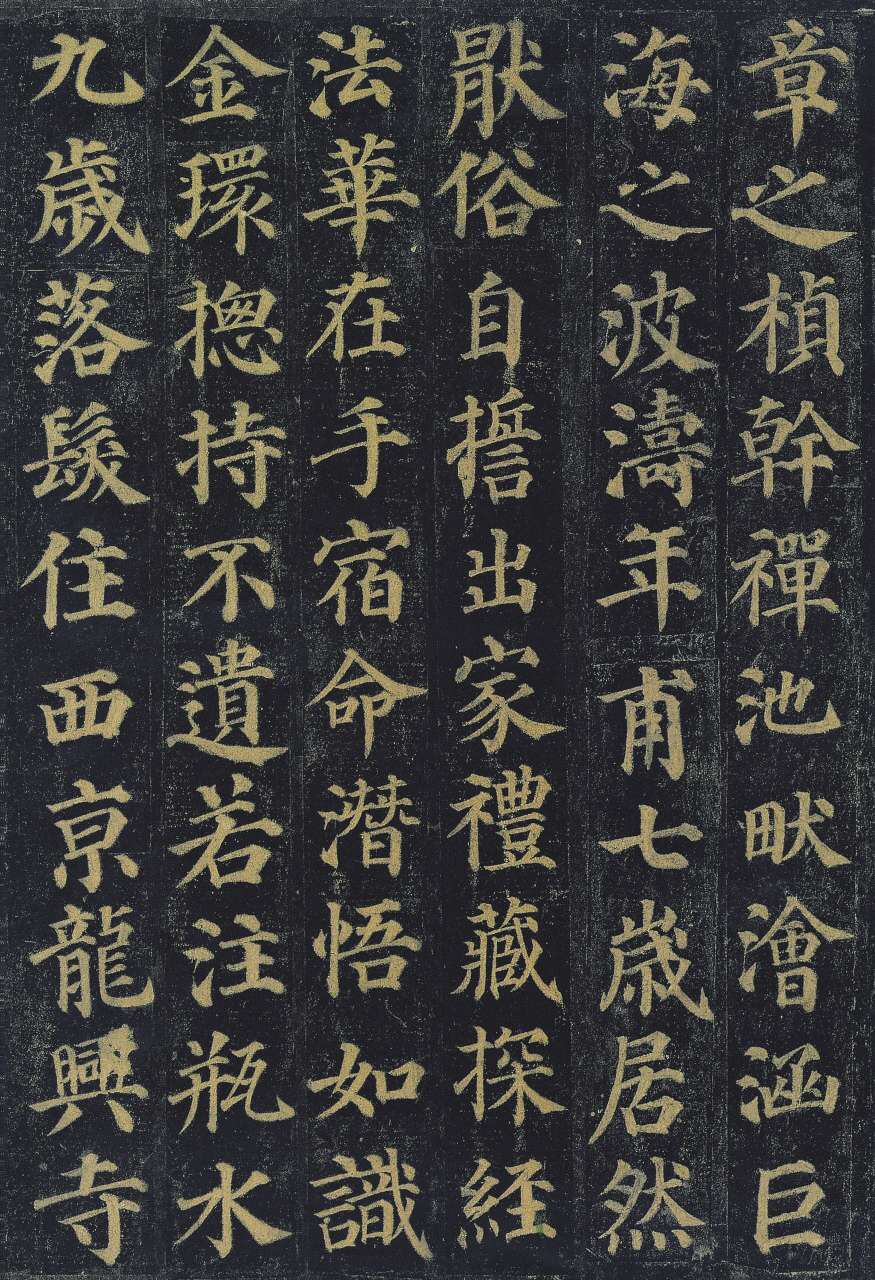 章之楨幹禪池畎澮涵巨
海之波濤年甫七歲居然
猒俗自擔出家禮藏探經
法華在手宿命潛悟如識
金環揔持不遺若注瓶水
九歲落髮住西京龍興寺